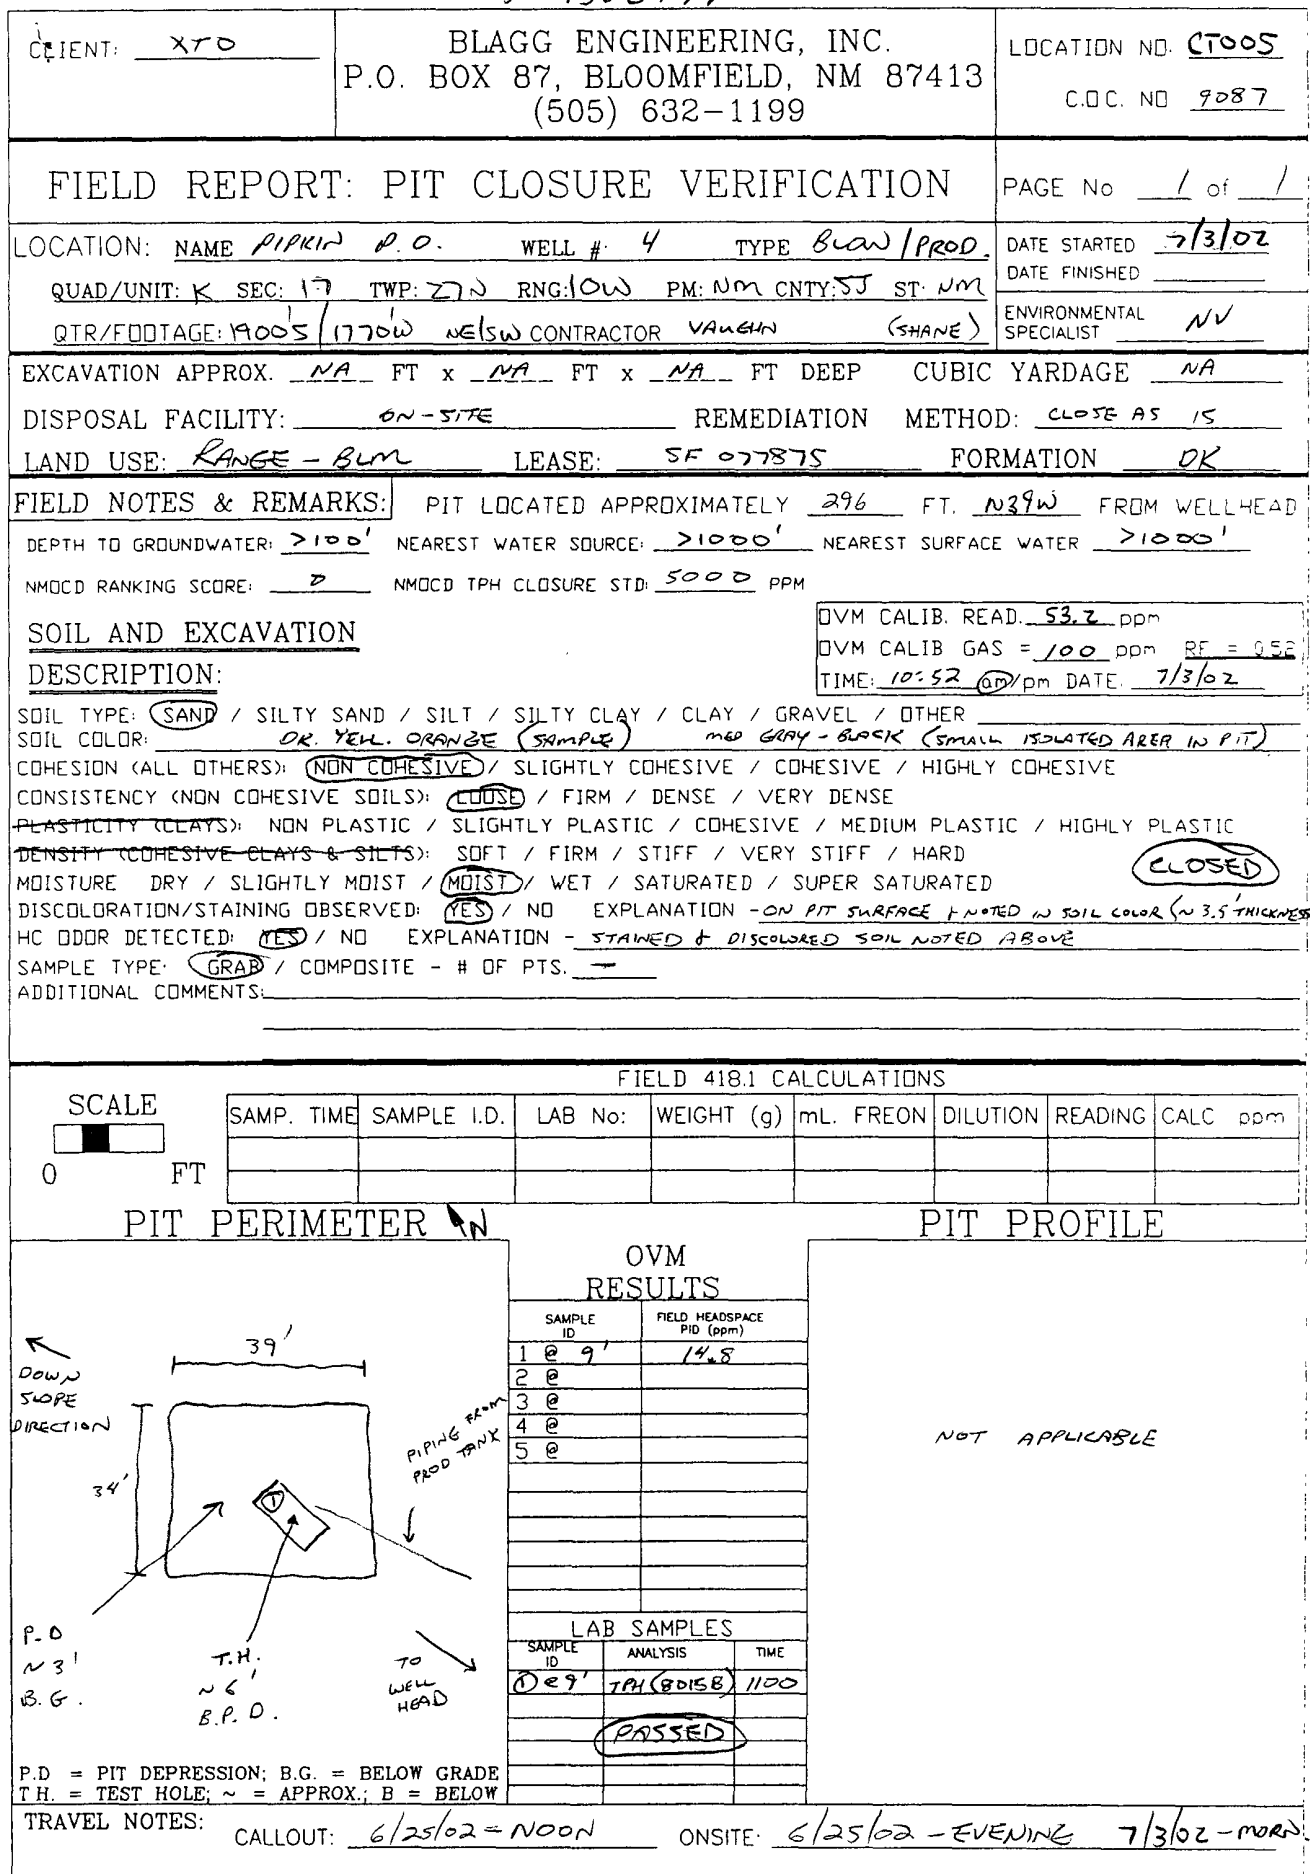 CLIENT: XTO
BLAGG ENGINEERING, INC.
P.O. BOX 87, BLOOMFIELD, NM 87413
(505) 632-1199
LOCATION NO. CT005
C.O.C. NO 9087
FIELD REPORT: PIT CLOSURE VERIFICATION
PAGE No 1 of 1
LOCATION: NAME PIPKIN P.O. WELL #: 4 TYPE BLOW/PROD.
QUAD/UNIT: K SEC: 17 TWP: 27N RNG: 10W PM: NM CNTY: SJ ST: NM
QTR/FOOTAGE: 1900'S/1770'W NE/SW CONTRACTOR VAUGHN (SHANE)
DATE STARTED 7/3/02
DATE FINISHED
ENVIRONMENTAL SPECIALIST NV
EXCAVATION APPROX. NA FT x NA FT x NA FT DEEP CUBIC YARDAGE NA
DISPOSAL FACILITY: ON-SITE REMEDIATION METHOD: CLOSE AS IS
LAND USE: RANGE - BLM LEASE: SF 077875 FORMATION DK
FIELD NOTES & REMARKS: PIT LOCATED APPROXIMATELY 296 FT. N39W FROM WELLHEAD
DEPTH TO GROUNDWATER: >100' NEAREST WATER SOURCE: >1000' NEAREST SURFACE WATER >1000'
NMOCD RANKING SCORE: 0 NMOCD TPH CLOSURE STD: 5000 PPM
SOIL AND EXCAVATION
DESCRIPTION:
OVM CALIB. READ. 53.2 ppm
OVM CALIB GAS = 100 ppm RF = 0.52
TIME: 10:52 am/pm DATE. 7/3/02
SOIL TYPE: SAND / SILTY SAND / SILT / SILTY CLAY / CLAY / GRAVEL / OTHER
SOIL COLOR: DK. YELL. ORANGE (SAMPLE) MED GRAY - BLACK (SMALL ISOLATED AREA IN PIT)
COHESION (ALL OTHERS): NON COHESIVE / SLIGHTLY COHESIVE / COHESIVE / HIGHLY COHESIVE
CONSISTENCY (NON COHESIVE SOILS): LOOSE / FIRM / DENSE / VERY DENSE
PLASTICITY (CLAYS): NON PLASTIC / SLIGHTLY PLASTIC / COHESIVE / MEDIUM PLASTIC / HIGHLY PLASTIC
DENSITY (COHESIVE CLAYS & SILTS): SOFT / FIRM / STIFF / VERY STIFF / HARD
CLOSED
MOISTURE DRY / SLIGHTLY MOIST / MOIST / WET / SATURATED / SUPER SATURATED
DISCOLORATION/STAINING OBSERVED: YES / NO EXPLANATION - ON PIT SURFACE + NOTED IN SOIL COLOR (~ 3.5' THICKNESS
HC ODOR DETECTED: YES / NO EXPLANATION - STAINED & DISCOLORED SOIL NOTED ABOVE
SAMPLE TYPE: GRAB / COMPOSITE - # OF PTS. —
ADDITIONAL COMMENTS:
SCALE
0 FT
FIELD 418.1 CALCULATIONS
SAMP. TIME SAMPLE I.D. LAB No: WEIGHT (g) mL. FREON DILUTION READING CALC ppm
PIT PERIMETER N
PIT PROFILE
OVM
RESULTS
SAMPLE ID FIELD HEADSPACE PID (ppm)
1 @ 9' 14.8
2 @
3 @
4 @
5 @
39'
DOWN
SLOPE
DIRECTION
34'
PIPING FROM
PROD TANK
1
P.D
~ 3'
B.G.
T.H.
~ 6'
B.P.D.
TO
WELL
HEAD
NOT APPLICABLE
LAB SAMPLES
SAMPLE ID ANALYSIS TIME
1 @ 9' TPH (8015B) 1100
PASSED
P.D = PIT DEPRESSION; B.G. = BELOW GRADE
T.H. = TEST HOLE; ~ = APPROX.; B = BELOW
TRAVEL NOTES: CALLOUT: 6/25/02 - NOON ONSITE: 6/25/02 - EVENING 7/3/02 - MORN